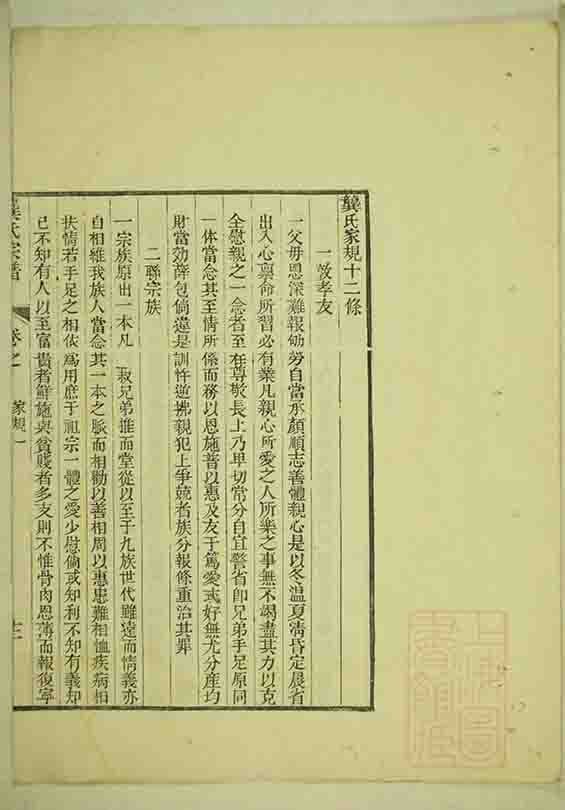 龔氏家規十二條
一敦孝友
一父母恩深難報劬勞自當承顏順志善體親心是以冬溫夏凊昏定晨省
出入必稟命所習必有業凡親心所愛之人所樂之事無不竭盡其力以克
全慰親之一念者至在尊敬長上乃卑切常分自宜警省卽兄弟手足原同
一体當念其至情所係而務以恩施普以惠及友于篤愛式好無尤分產均
財當効薛包倘違是訓忤逆拂親犯上爭競者族分報條重治其罪
二聯宗族
一宗族原出一本凡 叔兄弟推而堂從以至于九族世代雖遠而情義亦
自相維我族人當念其一本之脈而相勸以善相周以惠患難相恤疾病相
扶情若手足之相依爲用庶于祖宗一體之愛少慰倘或知利不知有義知
己不知有人以至富貴者鮮施與貧賤者多支則不惟骨肉恩薄而報復寧
龔氏宗譜
卷之
家規一
上海圖書館藏